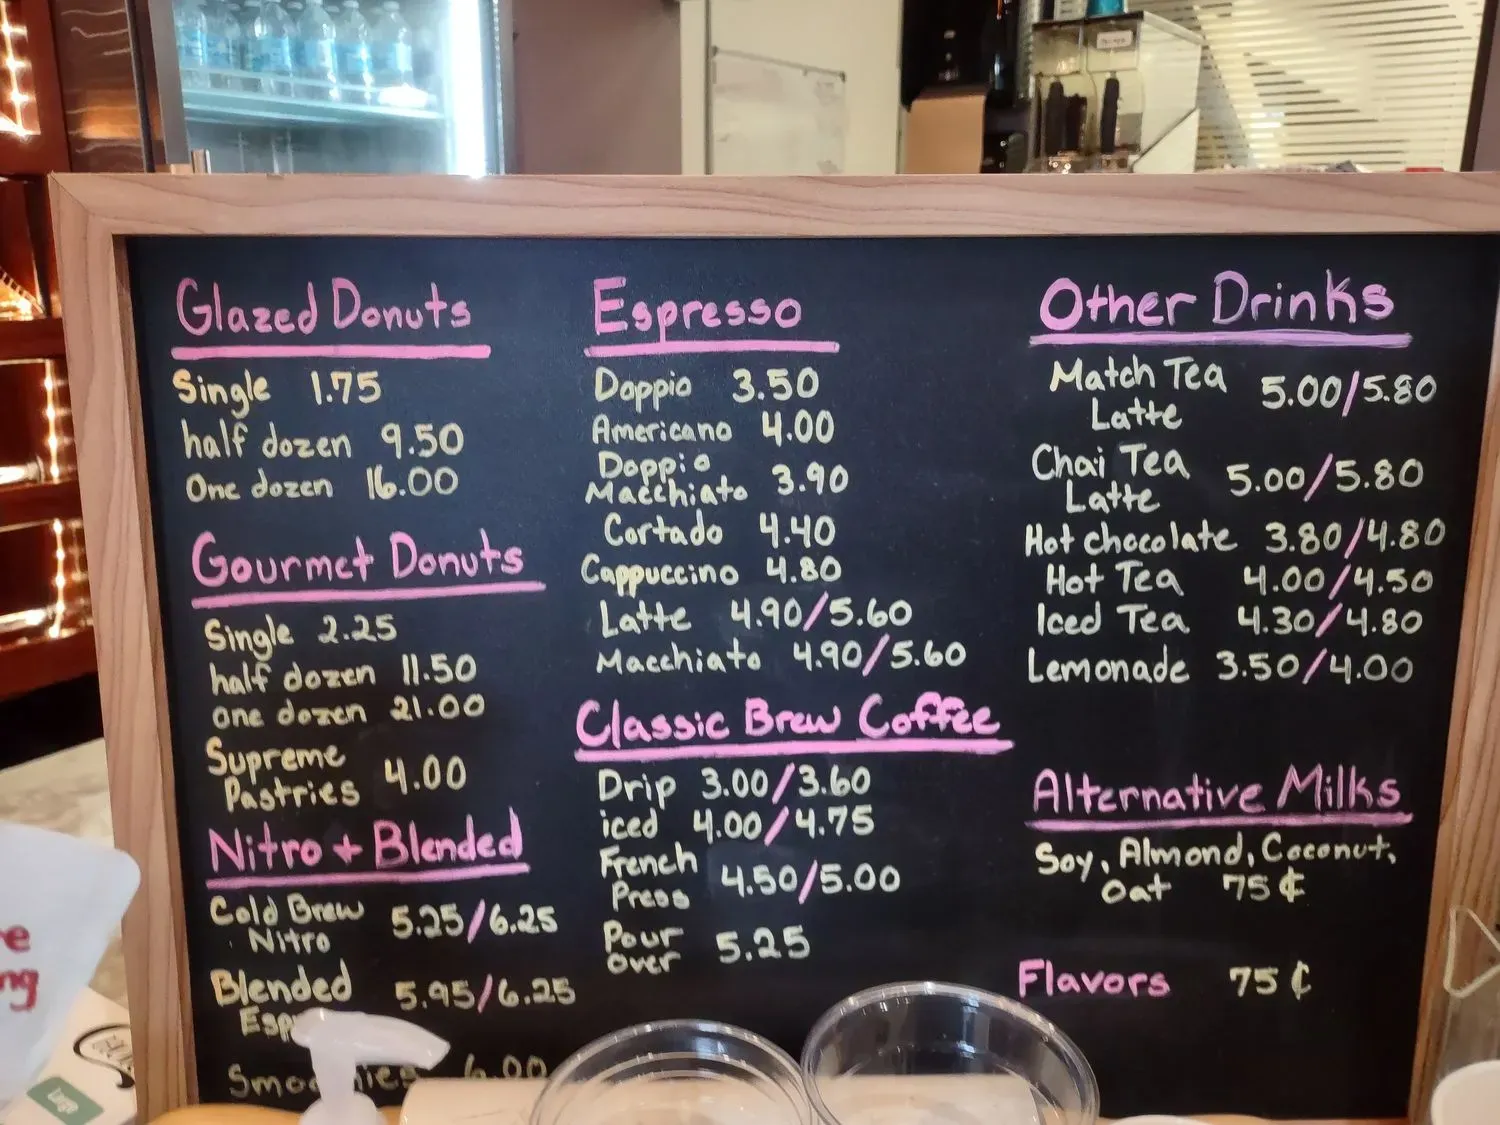 Glazed Donuts
Single 1.75
half dozen 9.50
One dozen 16.00
Gourmet Donuts
Single 2.25
half dozen 11.50
one dozen 21.00
Supreme
Pastries 4.00
Nitro + Blended
Cold Brew
Nitro 5.25/6.25
Blended 5.95/6.25
Smoothies 6.00
Espresso
Doppio 3.50
Americano 4.00
Doppio
Macchiato 3.90
Cortado 4.40
Cappuccino 4.80
Latte 4.90/5.60
Macchiato 4.90/5.60
Classic Brew Coffee
Drip 3.00/3.60
iced 4.00/4.75
French
Press 4.50/5.00
Pour
over 5.25
Other Drinks
Match Tea
Latte 5.00/5.80
Chai Tea
Latte 5.00/5.80
Hot chocolate 3.80/4.80
Hot Tea 4.00/4.50
Iced Tea 4.30/4.80
Lemonade 3.50/4.00
Alternative Milks
Soy, Almond, Coconut,
Oat 75¢
Flavors 75¢
Large